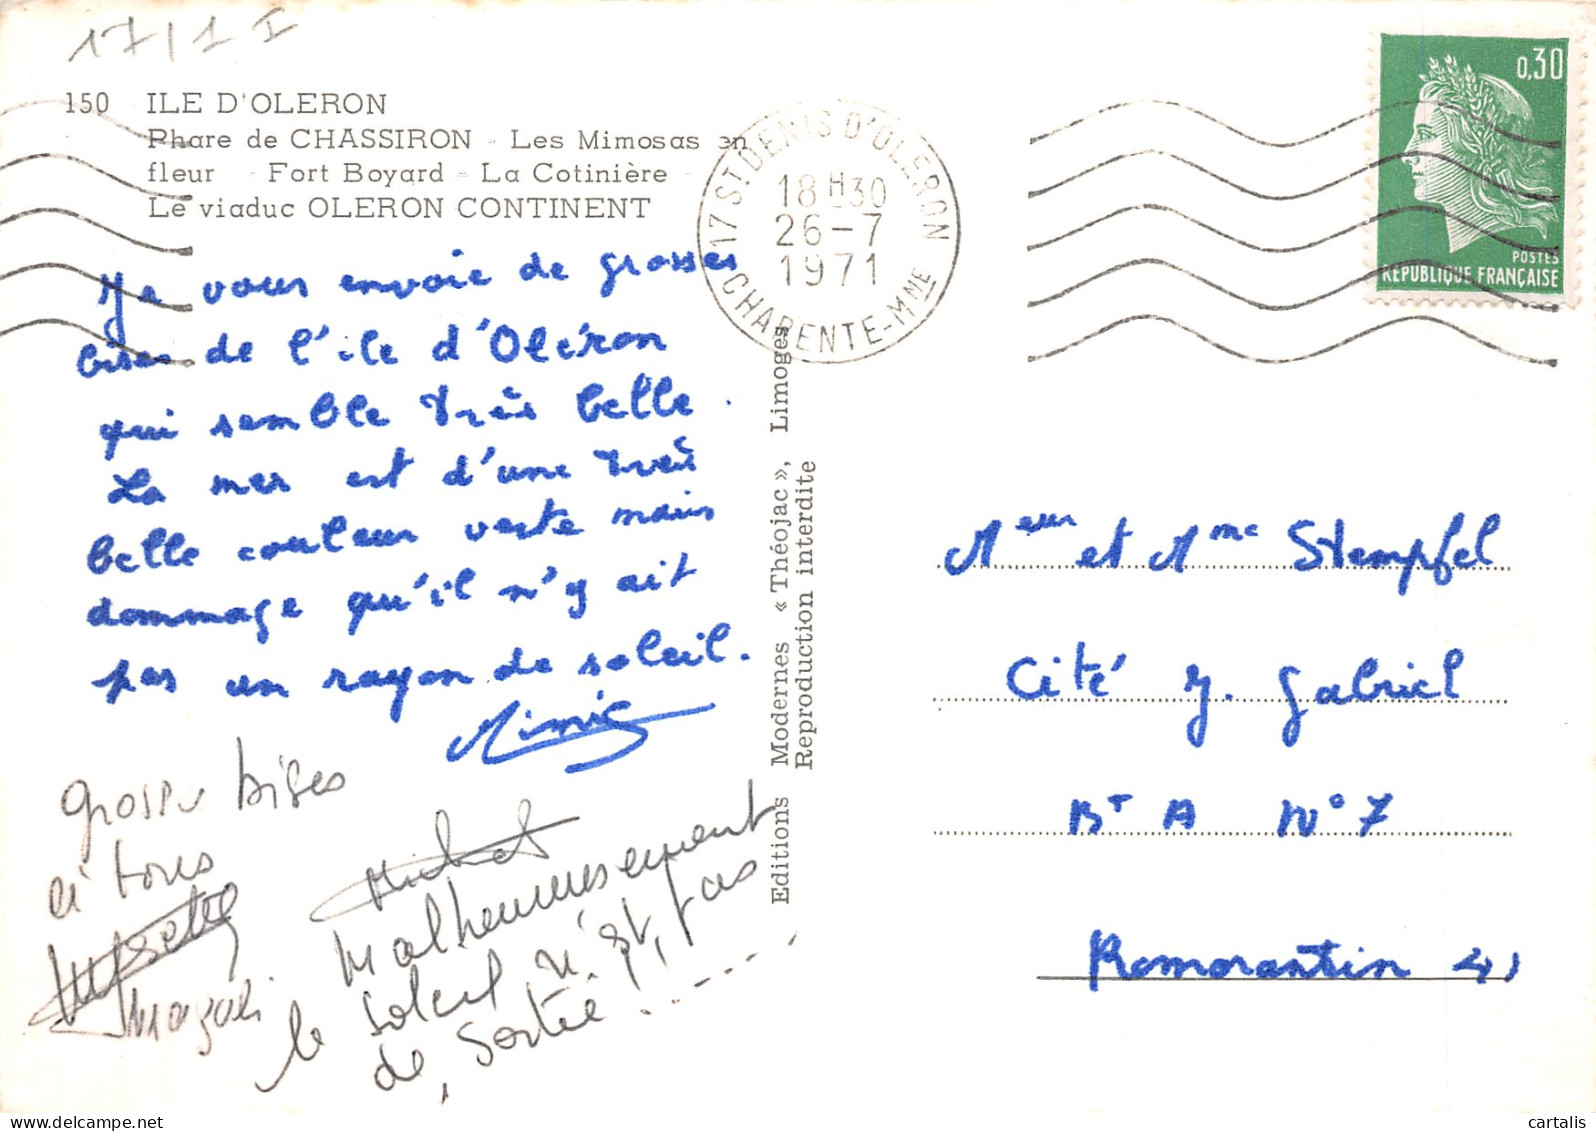 17/1 I
150 ILE D'OLERON
Phare de CHASSIRON - Les Mimosas en
fleur - Fort Boyard - La Cotinière -
Le viaduc OLERON CONTINENT
17 ST DENIS D'OLERON
18H30
26-7
1971
CHARENTE-MME
0,30
POSTES
RÉPUBLIQUE FRANÇAISE
Je vous envoie de grosses
bises de l'ile d'Oléron
qui semble très belle.
La mer est d'une très
belle couleur verte mais
dommage qu'il n'y ait
pas un rayon de soleil.
Mimie
grosses bises
à tous
Magali
Michel
Malheureusement
le soleil n'est pas
de, sortie!.----
Editions Modernes « Théojac », Limoges
Reproduction interdite
Meur et Mme Stempfel
Cité J. Gabriel
BT A No 7
Romorantin 41
cartalis